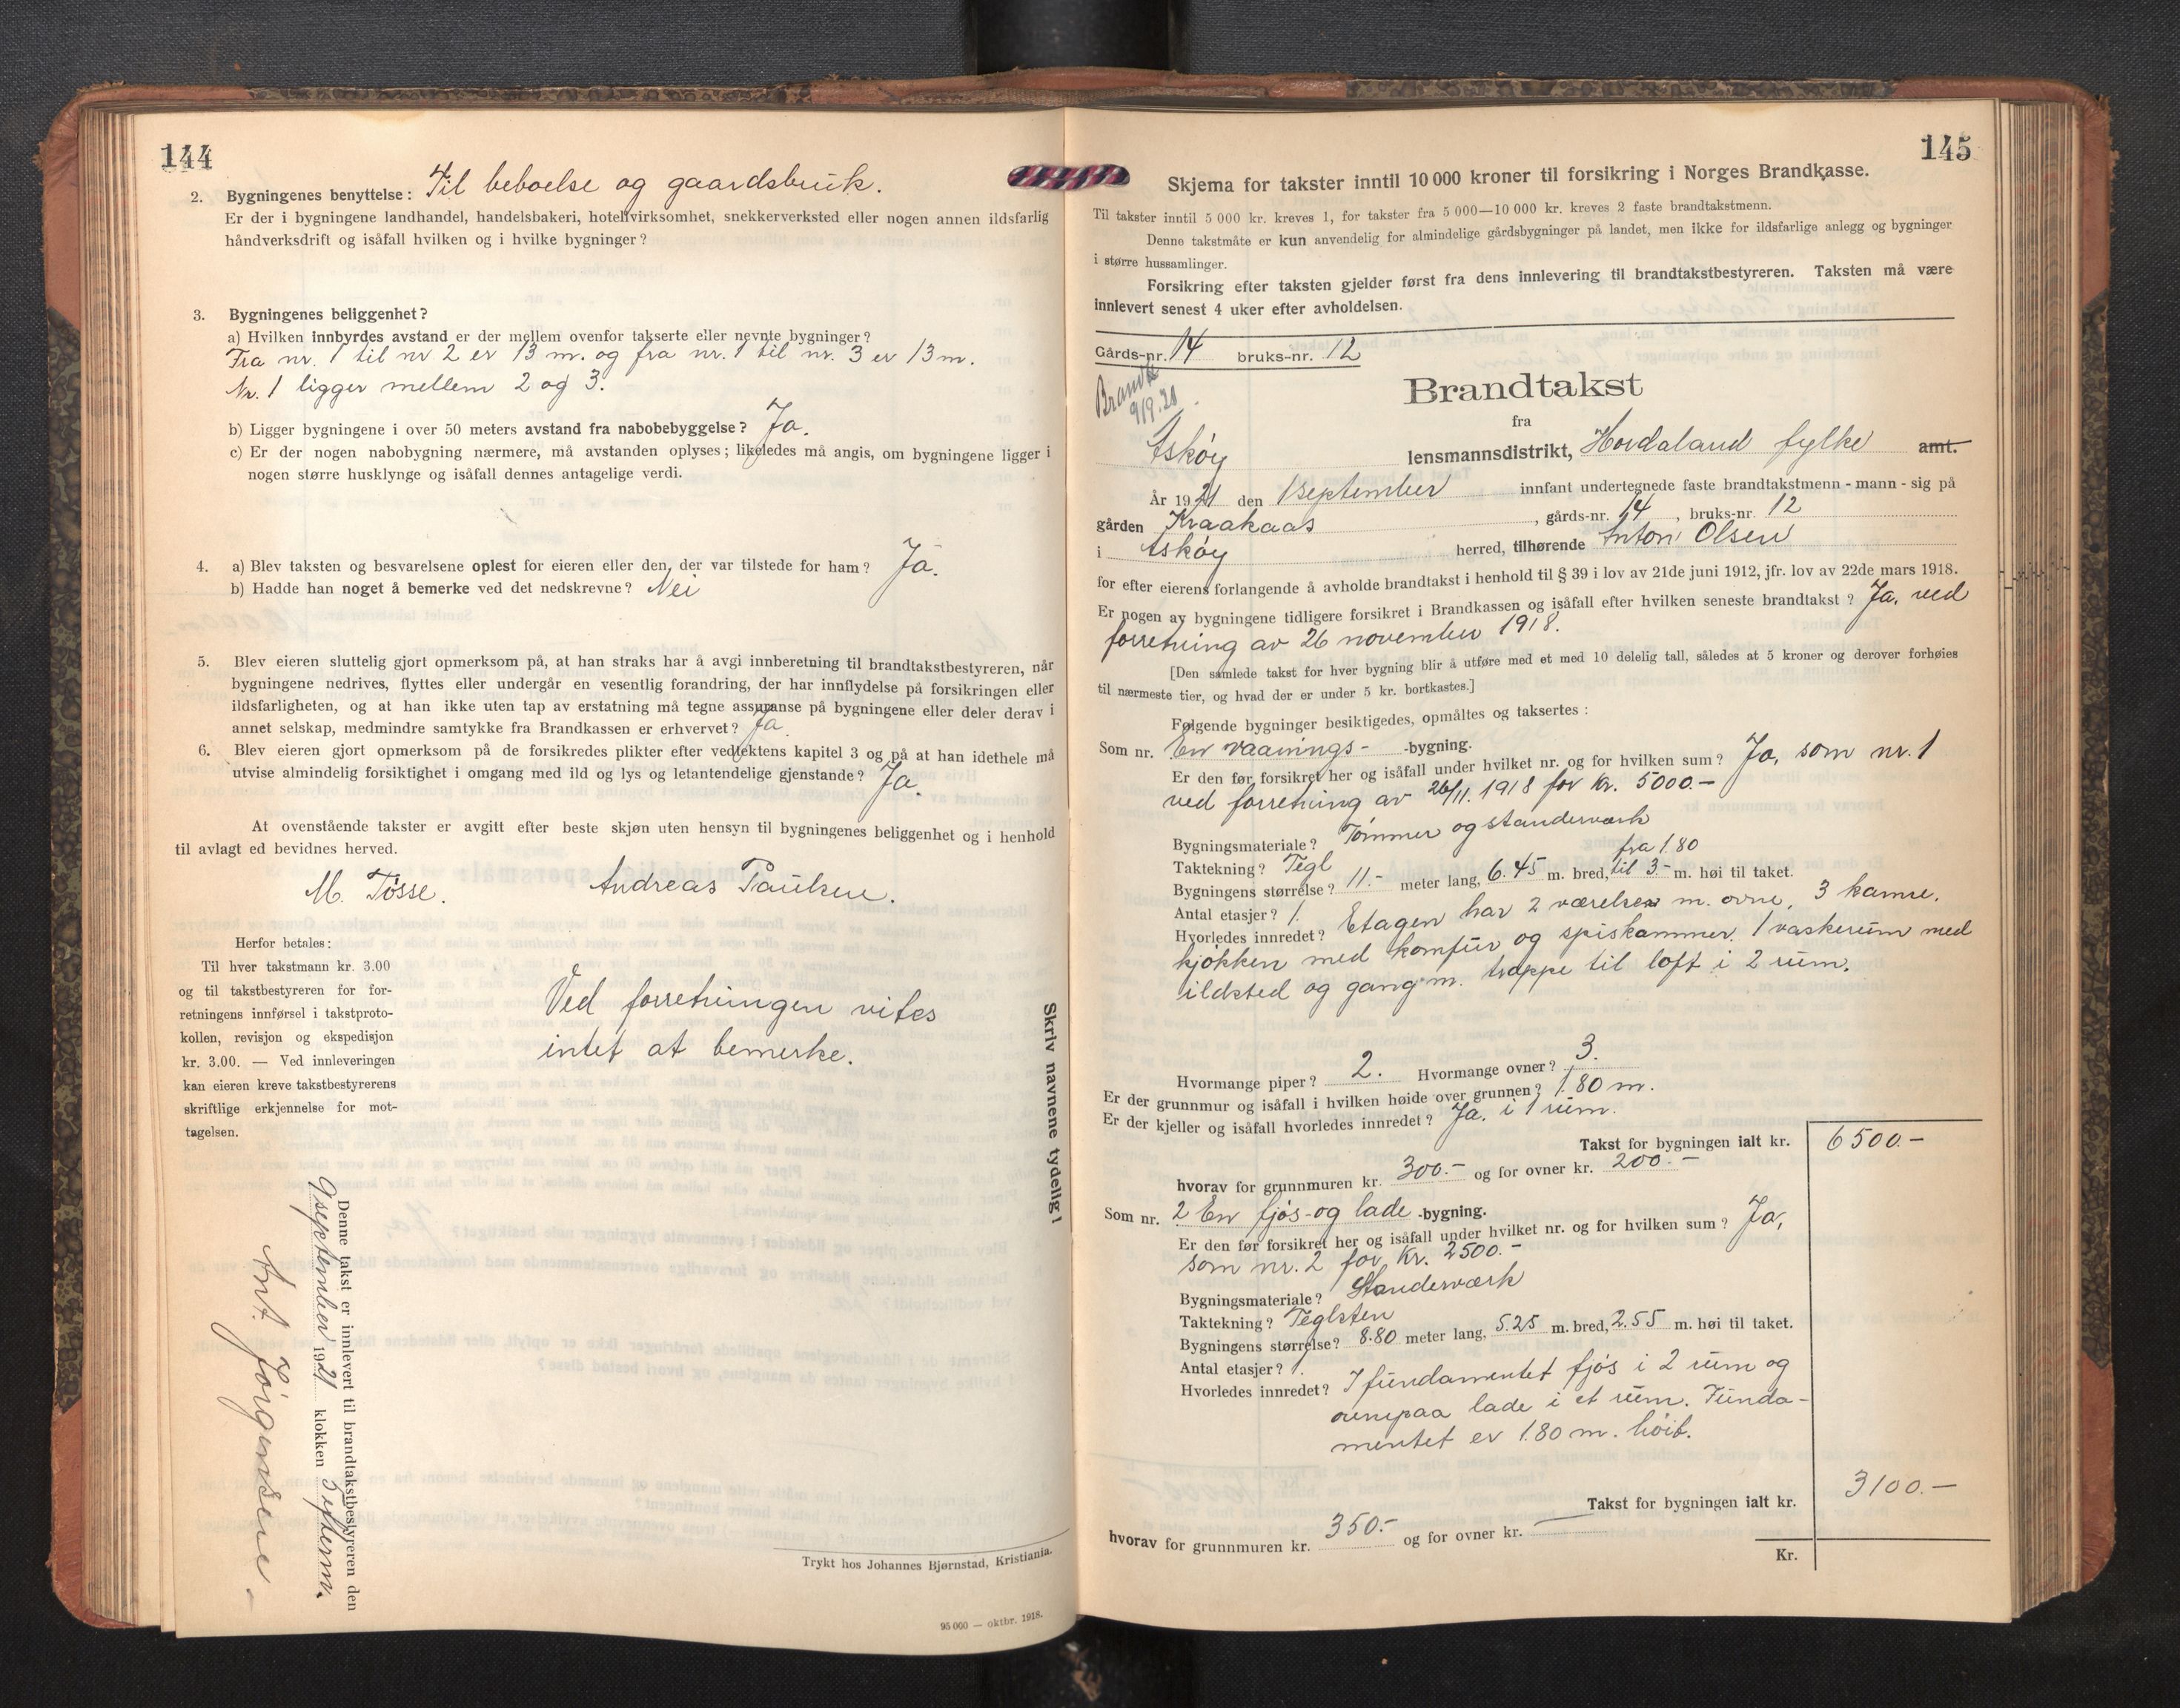 144
2. Bygningenes benyttelse: Til beboelse og gaardsbruk.
Er der i bygningene landhandel, handelsbakeri, hotellvirksomhet, snekkerverksted eller nogen annen ildsfarlig
håndverksdrift og isåfall hvilken og i hvilke bygninger?
3. Bygningenes beliggenhet?
a) Hvilken innbyrdes avstand er der mellem ovenfor takserte eller nevnte bygninger?
Fra nr. 1 til nr 2 er 13 m. og fra nr. 1 til nr. 3 er 13 m.
Nr. 1 ligger mellem 2 og 3.
b) Ligger bygningene i over 50 meters avstand fra nabobebyggelse? Ja.
c) Er der nogen nabobygning nærmere, må avstanden oplyses; likeledes må angis, om bygningene ligger i
nogen større husklynge og isåfall dennes antagelige verdi.
4. a) Blev taksten og besvarelsene oplest for eieren eller den, der var tilstede for ham? Ja.
b) Hadde han noget å bemerke ved det nedskrevne? Nei
5. Blev eieren sluttelig gjort opmerksom på, at han straks har å avgi innberetning til brandtakstbestyreren, når
bygningene nedrives, flyttes eller undergår en vesentlig forandring, der har innflydelse på forsikringen eller
ildsfarligheten, og at han ikke uten tap av erstatning må tegne assuranse på bygningene eller deler derav i
annet selskap, medmindre samtykke fra Brandkassen er erhvervet? Ja.
6. Blev eieren gjort opmerksom på de forsikredes plikter efter vedtektens kapitel 3 og på at han idethele må
utvise almindelig forsiktighet i omgang med ild og lys og letantendelige gjenstande? Ja.
At ovenstående takster er avgitt efter beste skjøn uten hensyn til bygningenes beliggenhet og i henhold
til avlagt ed bevidnes herved.
M. Tøsse. Andreas Paulsen.
Herfor betales:
Til hver takstmann kr. 3.00
og til takstbestyreren for for-
retningens innførsel i takstproto-
kollen, revisjon og ekspedisjon
kr. 3.00. — Ved innleveringen
kan eieren kreve takstbestyrerens
skriftlige erkjennelse for mot-
tagelsen.
Ved forretningen vites
intet at bemerke.
Skriv navnene tydelig!
Denne takst er innlevert til brandtakstbestyreren den
9 september 1921 klokken 5 efterm.
Ant. Jørgensen
Trykt hos Johannes Bjørnstad, Kristiania.
95 000 — oktbr. 1918.
145
Skjema for takster inntil 10 000 kroner til forsikring i Norges Brandkasse.
Til takster inntil 5 000 kr. kreves 1, for takster fra 5 000—10 000 kr. kreves 2 faste brandtakstmenn.
Denne takstmåte er kun anvendelig for almindelige gårdsbygninger på landet, men ikke for ildsfarlige anlegg og bygninger
i større hussamlinger.
Forsikring efter taksten gjelder først fra dens innlevering til brandtakstbestyreren. Taksten må være
innlevert senest 4 uker efter avholdelsen.
Gårds-nr. 14 bruks-nr. 12
9/9.28
Brandtakst
fra
Askøy lensmannsdistrikt, Hordaland fylke amt.
År 1921 den 1 september innfant undertegnede faste brandtakstmenn - mann - sig på
gården Kraakaas, gårds-nr. 14, bruks-nr. 12
i Askøy herred, tilhørende Anton Olsen
for efter eierens forlangende å avholde brandtakst i henhold til § 39 i lov av 21de juni 1912, jfr. lov av 22de mars 1918.
Er nogen av bygningene tidligere forsikret i Brandkassen og isåfall efter hvilken seneste brandtakst? Ja, ved
forretning av 26 november 1918.
[Den samlede takst for hver bygning blir å utføre med et med 10 delelig tall, således at 5 kroner og derover forhøies
til nærmeste tier, og hvad der er under 5 kr. bortkastes.]
Følgende bygninger besiktigedes, opmåltes og taksertes:
Som nr. En vaanings- -bygning.
Er den før forsikret her og isåfall under hvilket nr. og for hvilken sum? Ja, som nr. 1
ved forretning av 26/11. 1918 for kr. 5000.-
Bygningsmateriale? Tømmer og standerværk
Taktekning? Tegl fra 1.80
Bygningens størrelse? 11.- meter lang, 6.45 m. bred, til 3.- m. høi til taket.
Antal etasjer? 1.
Hvorledes innredet? Etagen har 2 værelser m. ovne, 3 kamre,
kjøkken med komfur og spiskammer. 1 vaskerum med
ildsted og gang m. trappe til loft i 2 rum.
Hvormange piper? 2. Hvormange ovner? 3.
Er der grunnmur og isåfall i hvilken høide over grunnen? 1.80 m.
Er der kjeller og isåfall hvorledes innredet? Ja, i 1 rum.
Takst for bygningen ialt kr. 6500.-
hvorav for grunnmuren kr. 300.- og for ovner kr. 200.-
Som nr. 2 En fjøs- og lade -bygning.
Er den før forsikret her og isåfall under hvilket nr. og for hvilken sum? Ja,
som nr. 2 for kr. 2500.-
Bygningsmateriale? Standerværk
Taktekning? Teglsten
Bygningens størrelse? 8.80 meter lang, 5.25 m. bred, 2.55 m. høi til taket.
Antal etasjer? 1.
Hvorledes innredet? I fundamentet fjøs i 2 rum og
ovenpaa lade i et rum. Funda-
mentet er 1.80 m. høit.
Takst for bygningen ialt kr. 3100.-
hvorav for grunnmuren kr. 350.- og for ovner kr. —
Kr.